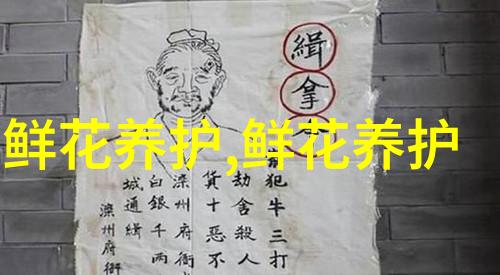 鲜花养护,鲜花养护
緝拿
犯牛三打
劫舍殺人
貨十惡不
滦州府衙
白銀千兩
城通緝
滦州府衙